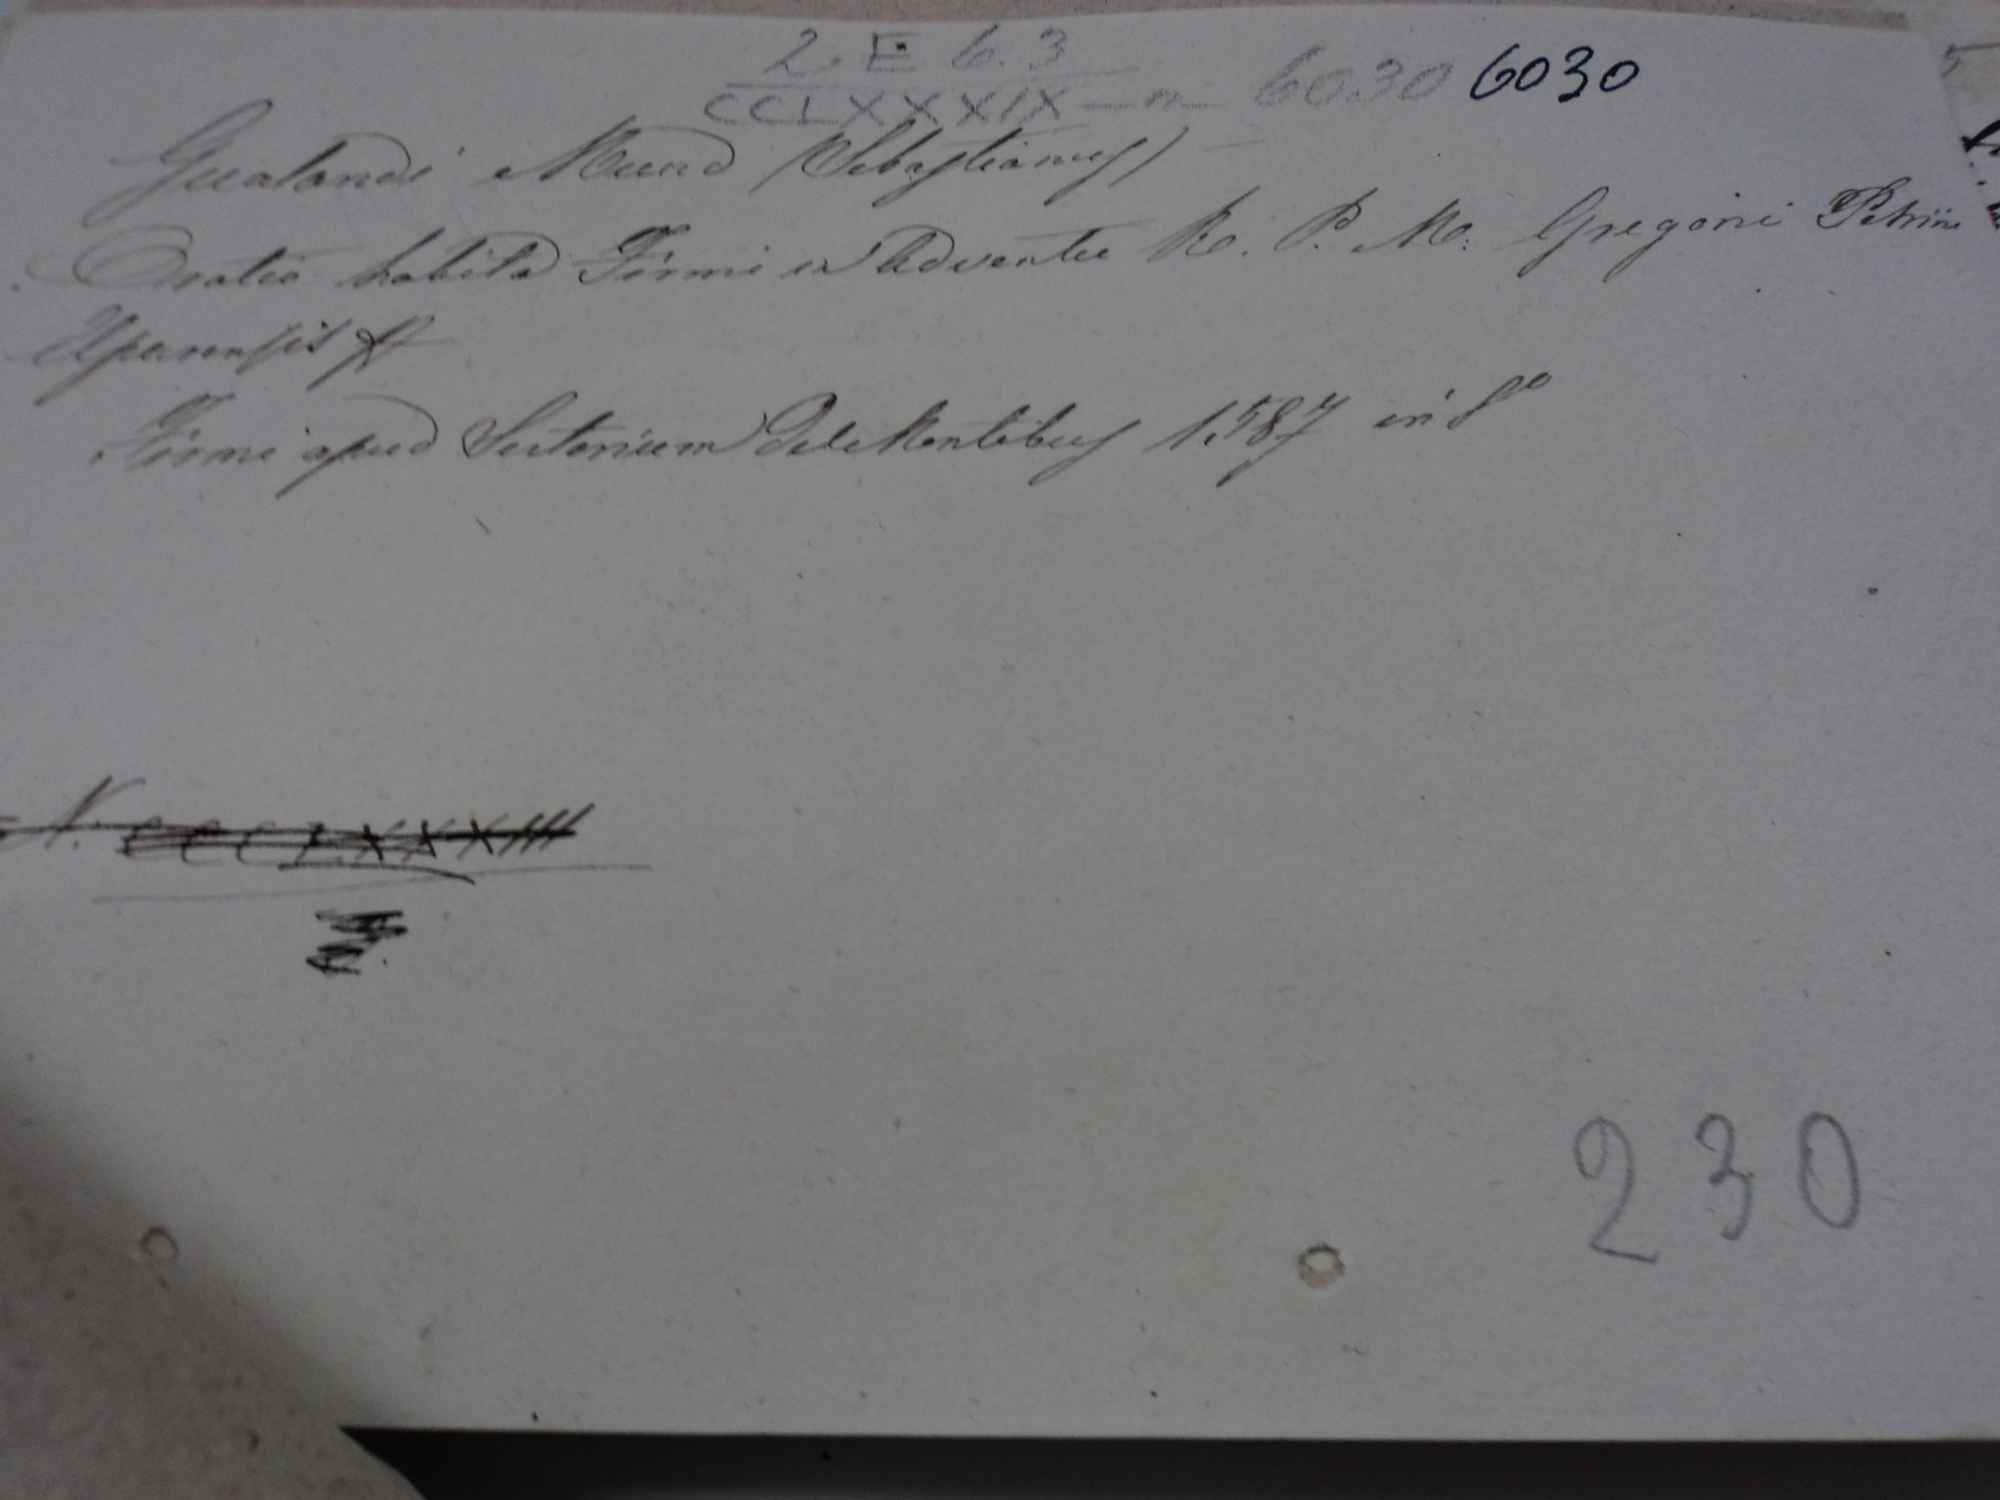 2. E 6. 3
CCLXXXXIX — n 6030 6030
Gualandi (Sebastianus)
Oratio habita Firmi in Adventu R. P. M. Gregorii Petrini
Firmi apud Sertorium De Montibus 1587 in 8º
N. CCCLXXXIII
230